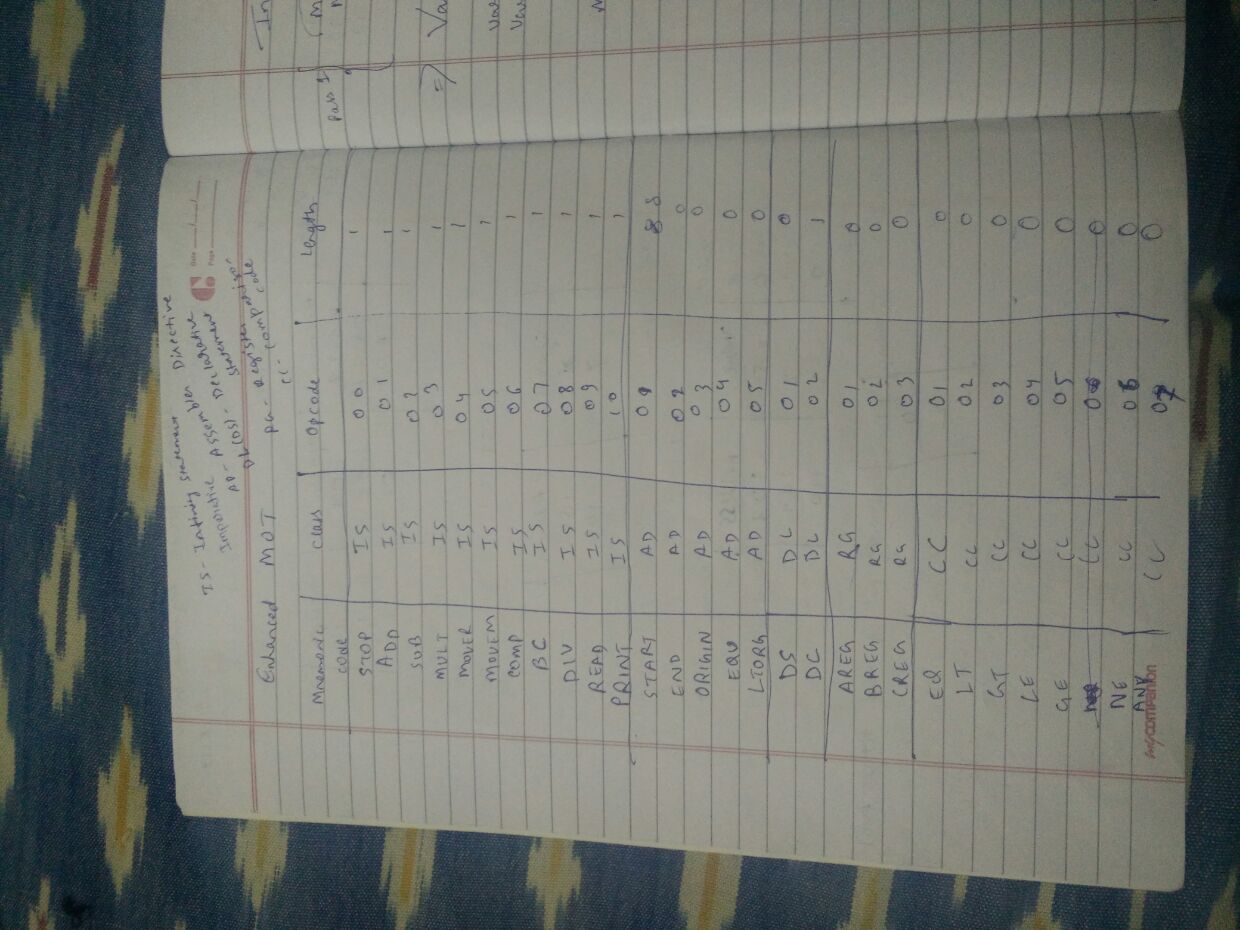 IS- Infinity Statement
Imperative
AD - Assembler Directive
DL(DS) - Declarative
Statement
RG - Register
CC - Comparison
code
Date / /
Page
Enhanced MOT
Mnemonic class Opcode Length
code
STOP IS 00 1
ADD IS 01 1
SUB IS 02 1
MULT IS 03 1
MOVER IS 04 1
MOVEM IS 05 1
COMP IS 06 1
BC IS 07 1
DIV IS 08 1
READ IS 09 1
PRINT IS 10 1
START AD 01
END AD 02 0
ORIGIN AD 03 0
EQU AD 04 0
LTORG AD 05 0
DS DL 01 0
DC DL 02 1
AREG RG 01 0
BREG RG 02 0
CREG RG 03 0
EQ CC 01 0
LT CC 02 0
GT CC 03 0
LE CC 04 0
GE CC 05 0
CC 06 0
NE CC 06 0
ANY CC 07 0
mycompanion
In
M
Pass 1
=> Va
var
var